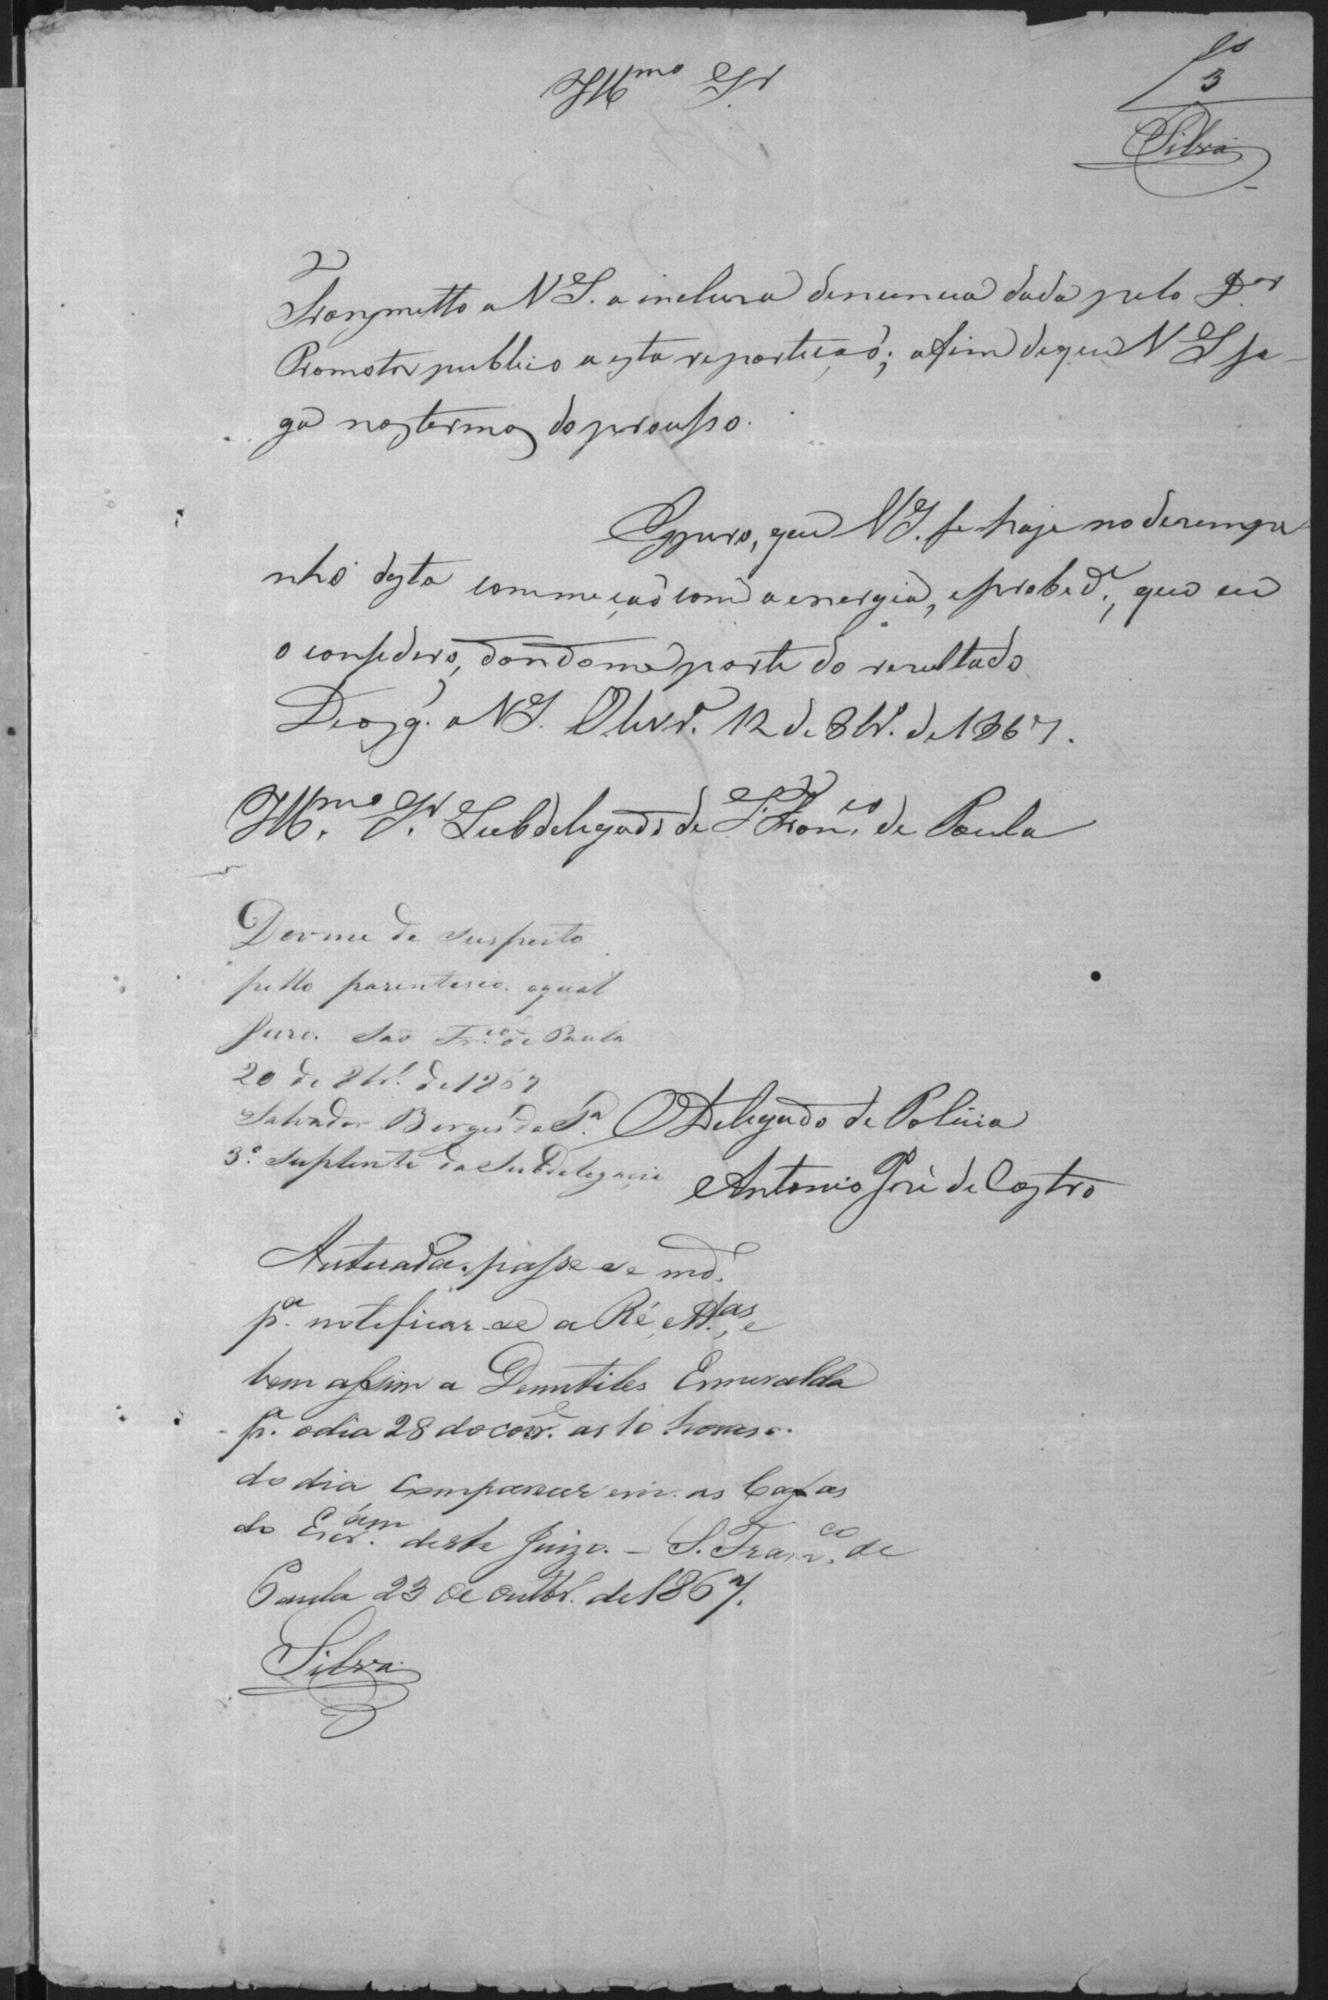 fs
3
Silva
Illmo Sr
Transmetto a V S. a incluza denuncia dada pelo Dor
Promotor publico a esta repartição; afim de que V S fa-
ça nos termos do prousso.
Espero, que V S. se haje no dezempe
nho desta commeção com a energia, e probed.e, que eu
o consedero, dandome parte do rezultado.
Deos g. a V S. Olivr.a 12 de 8br.o de 1867.
Illmo. Sr. Subdelegado de S. Franco. de Paula
Dorme de suspeito
pello parentesco. oqual
juro. São Frco. de Paula
20 de 8br.o de 1867
Salvador Borges da S.a
3.o suplente da Subdelegacia
O Delegado de Policia
Antonio José de Castro
Autuada. passe se md.o
p.a notificar-se a Ré, e tas., e
bem assim a Esmeralda
p.a o dia 28 do corr.e as 10 horas.
do dia comparecerem. as Cazas
do Escr.am deste Juizo. - S. Franco. de
Paula 23 de outbr.o de 1867.
Silva